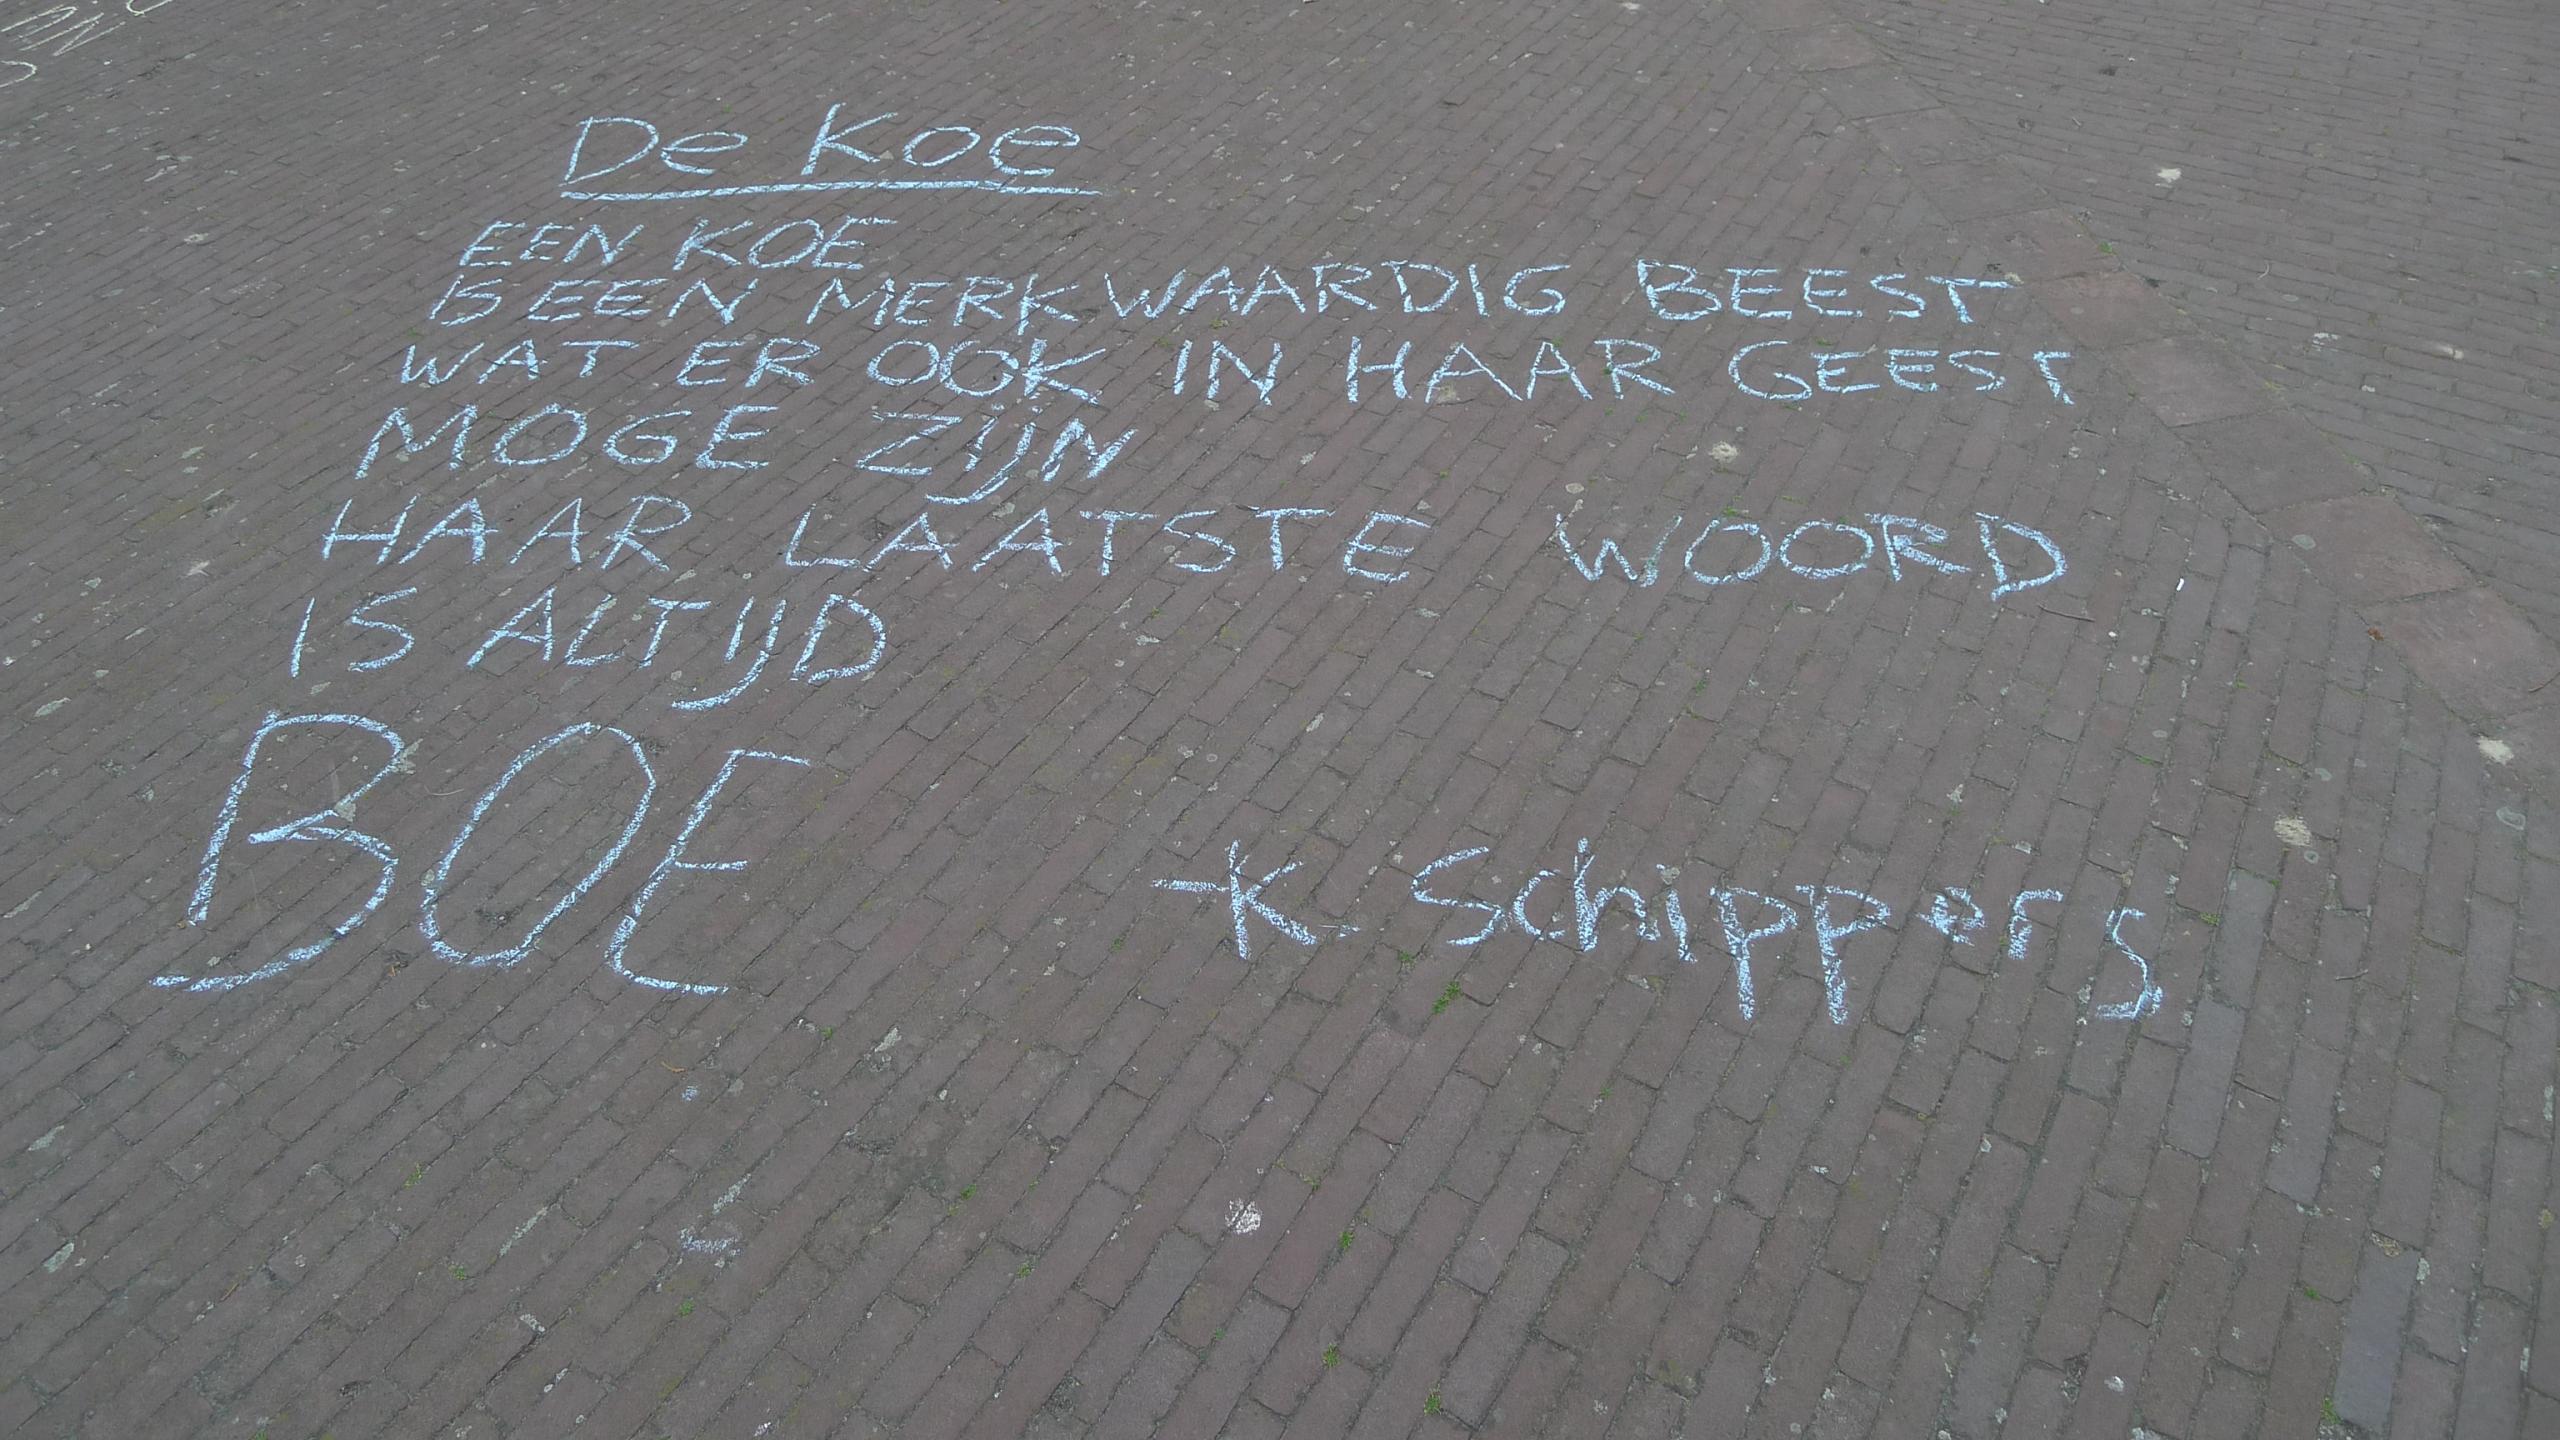 De Koe
EEN KOE
IS EEN MERKWAARDIG BEEST
WAT ER OOK IN HAAR GEEST
MOGE ZIJN
HAAR LAATSTE WOORD
IS ALTIJD
BOE
-K. Schippers